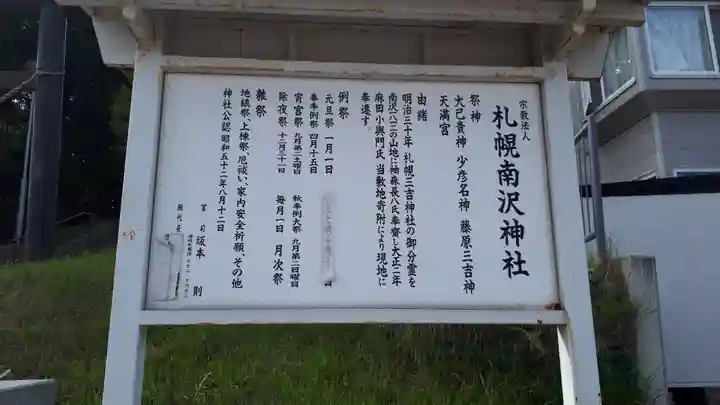 宗教法人
札幌南沢神社
祭神
大己貴神 少彦名神 藤原三吉神
天満宮
由緒
明治三十年 札幌三吉神社の御分霊を
南沢一八二の山地に袖森長八氏奉齋し大正二年
麻田小與門氏 当敷地寄附により現地に
奉遷す。
例祭
元旦祭 一月一日
春季例祭 四月十五日
宵宮祭 九月第二土曜日
秋季例大祭 九月第二日曜日
除夜祭 十二月三十一日
毎月一日 月次祭
雜祭
地鎮祭、上棟祭、厄祓い、家内安全祈願、その他
神社公認 昭和五十二年八月十二日
宮司 坂本 則
総代長